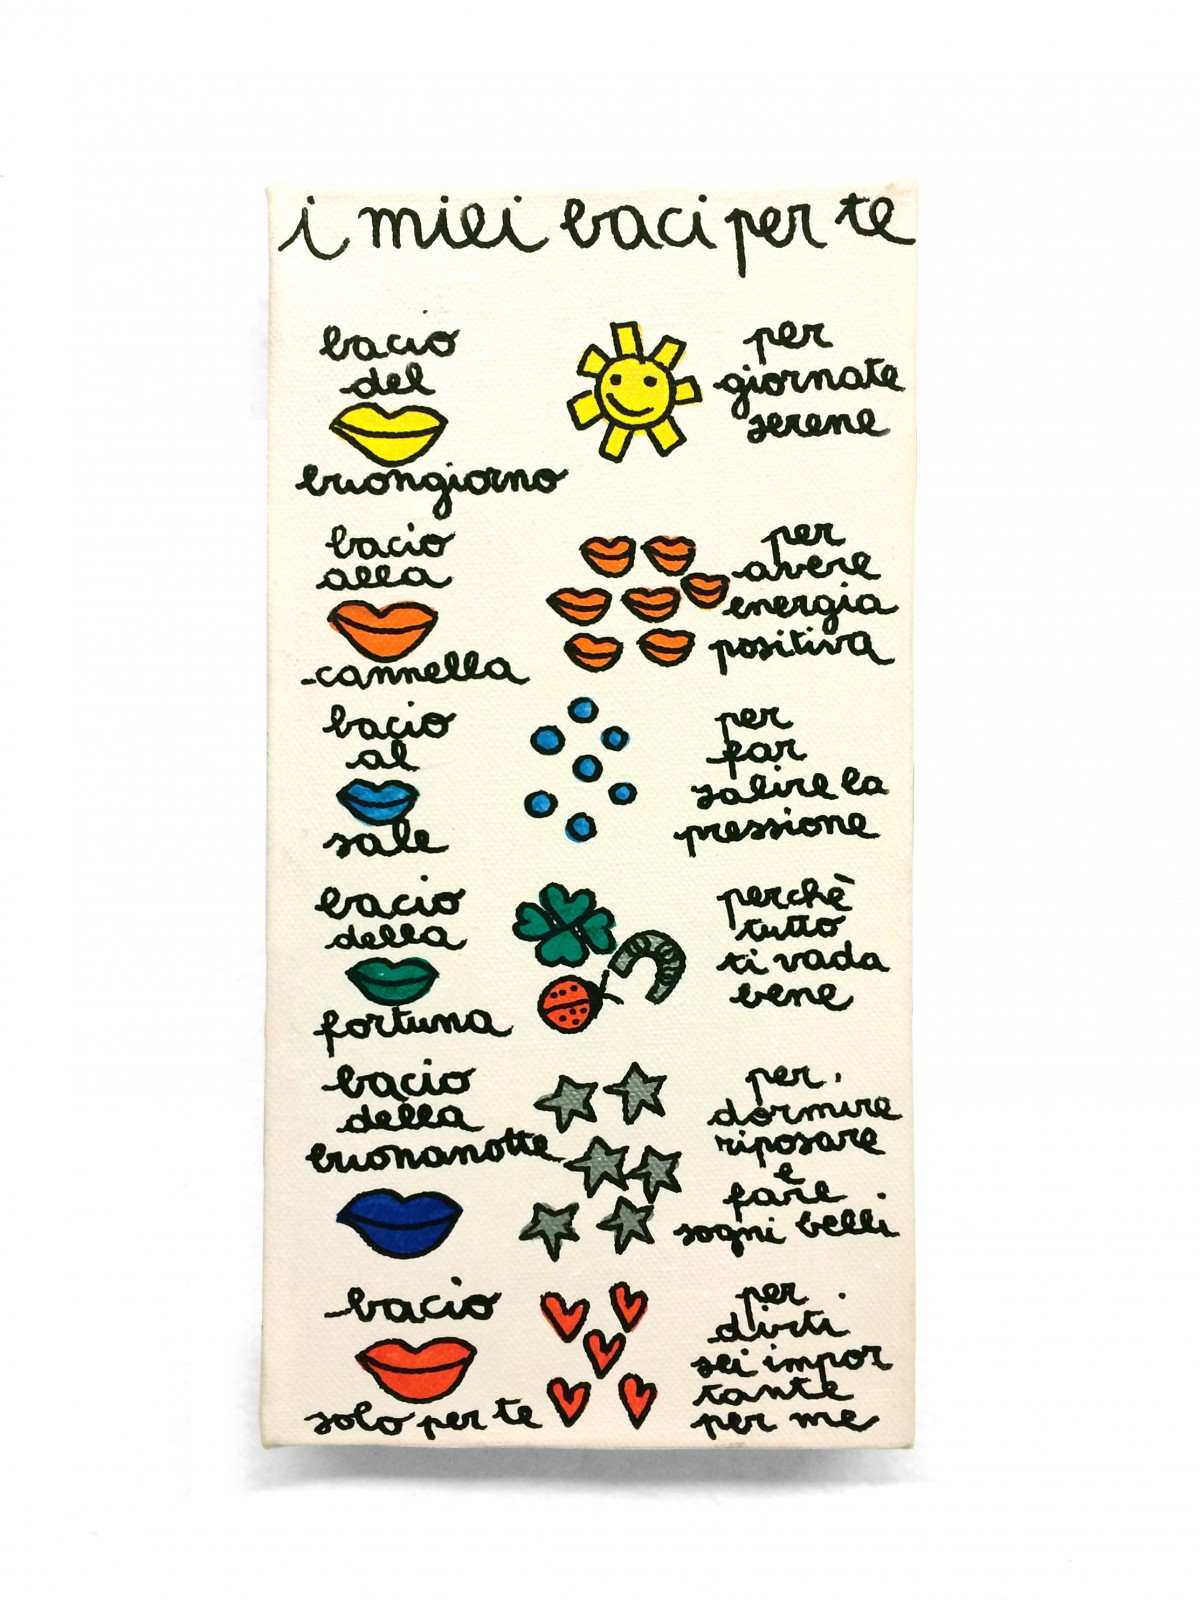 i miei baci per te
bacio
del
buongiorno
per
giornate
serene
bacio
alla
cannella
per
avere
energia
positiva
bacio
al
sale
per
far
salire la
pressione
bacio
della
fortuna
perchè
tutto
ti vada
bene
bacio
della
buonanotte
per
dormire
riposare
e
fare
sogni belli
bacio
solo per te
per
dirti
sei impor
tante
per me